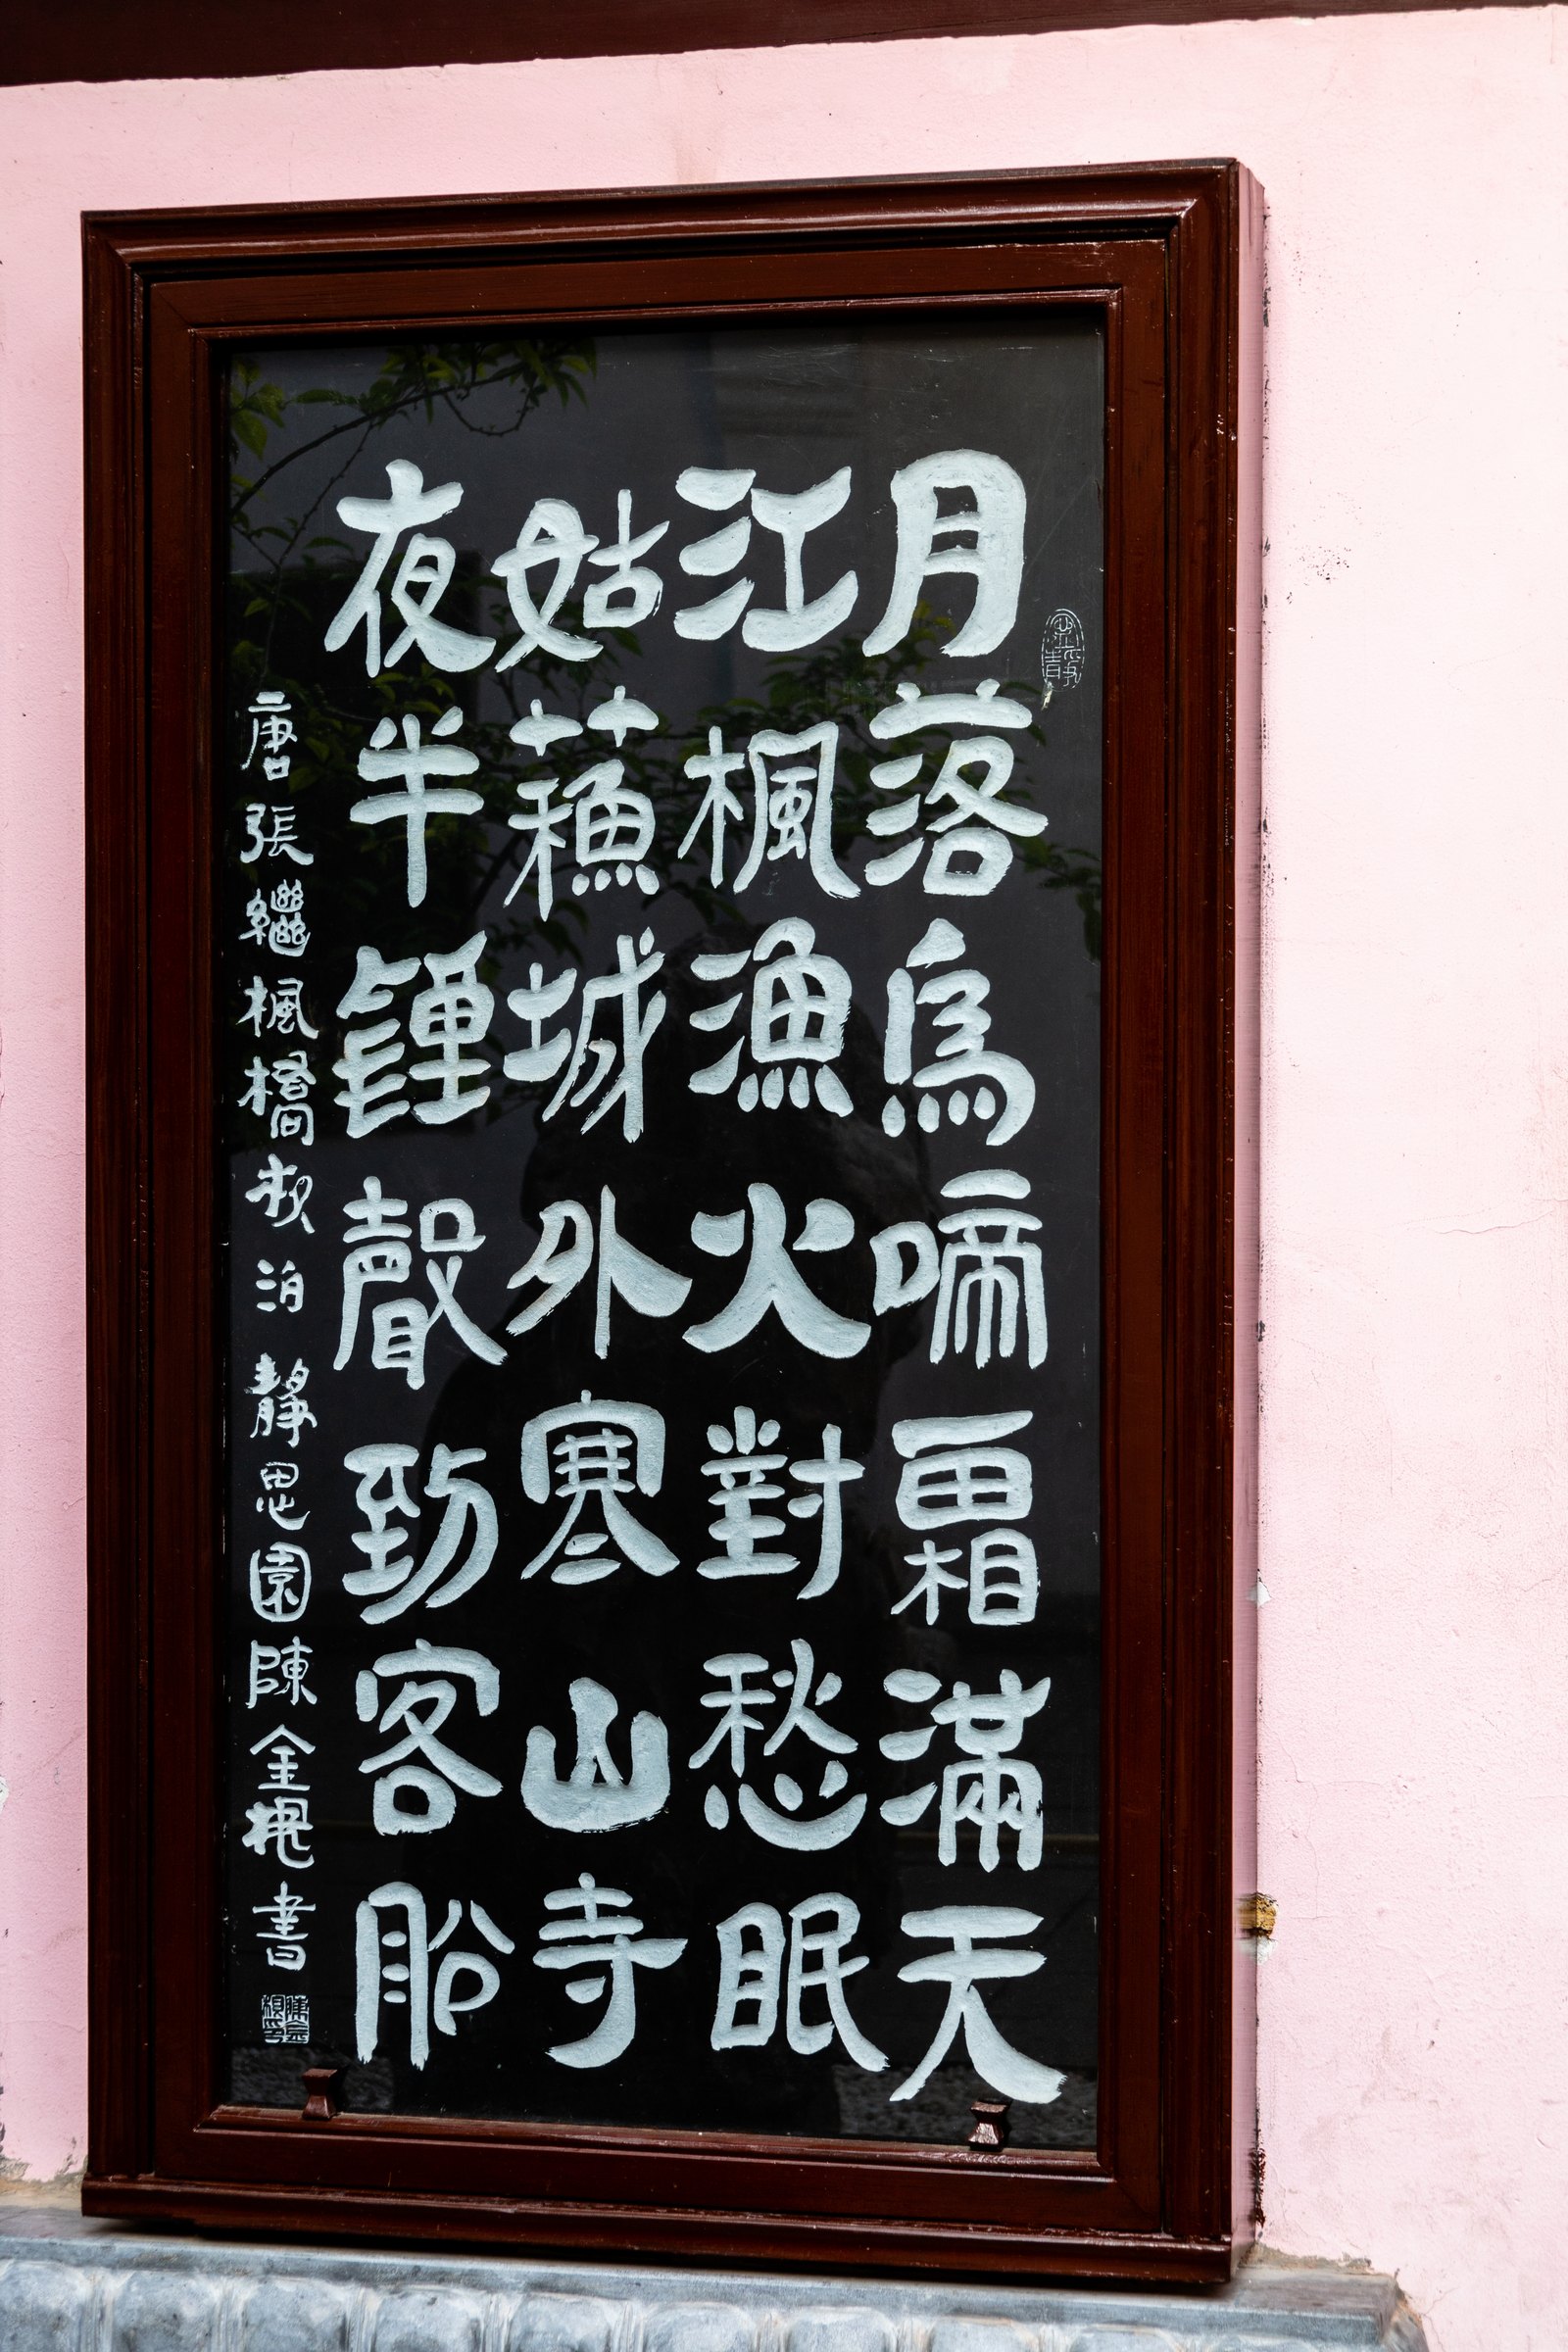 月落烏啼霜滿天
江楓漁火對愁眠
姑蘓城外寒山寺
夜半鍾聲到客船
唐張繼楓橋夜泊靜思園陳金根書